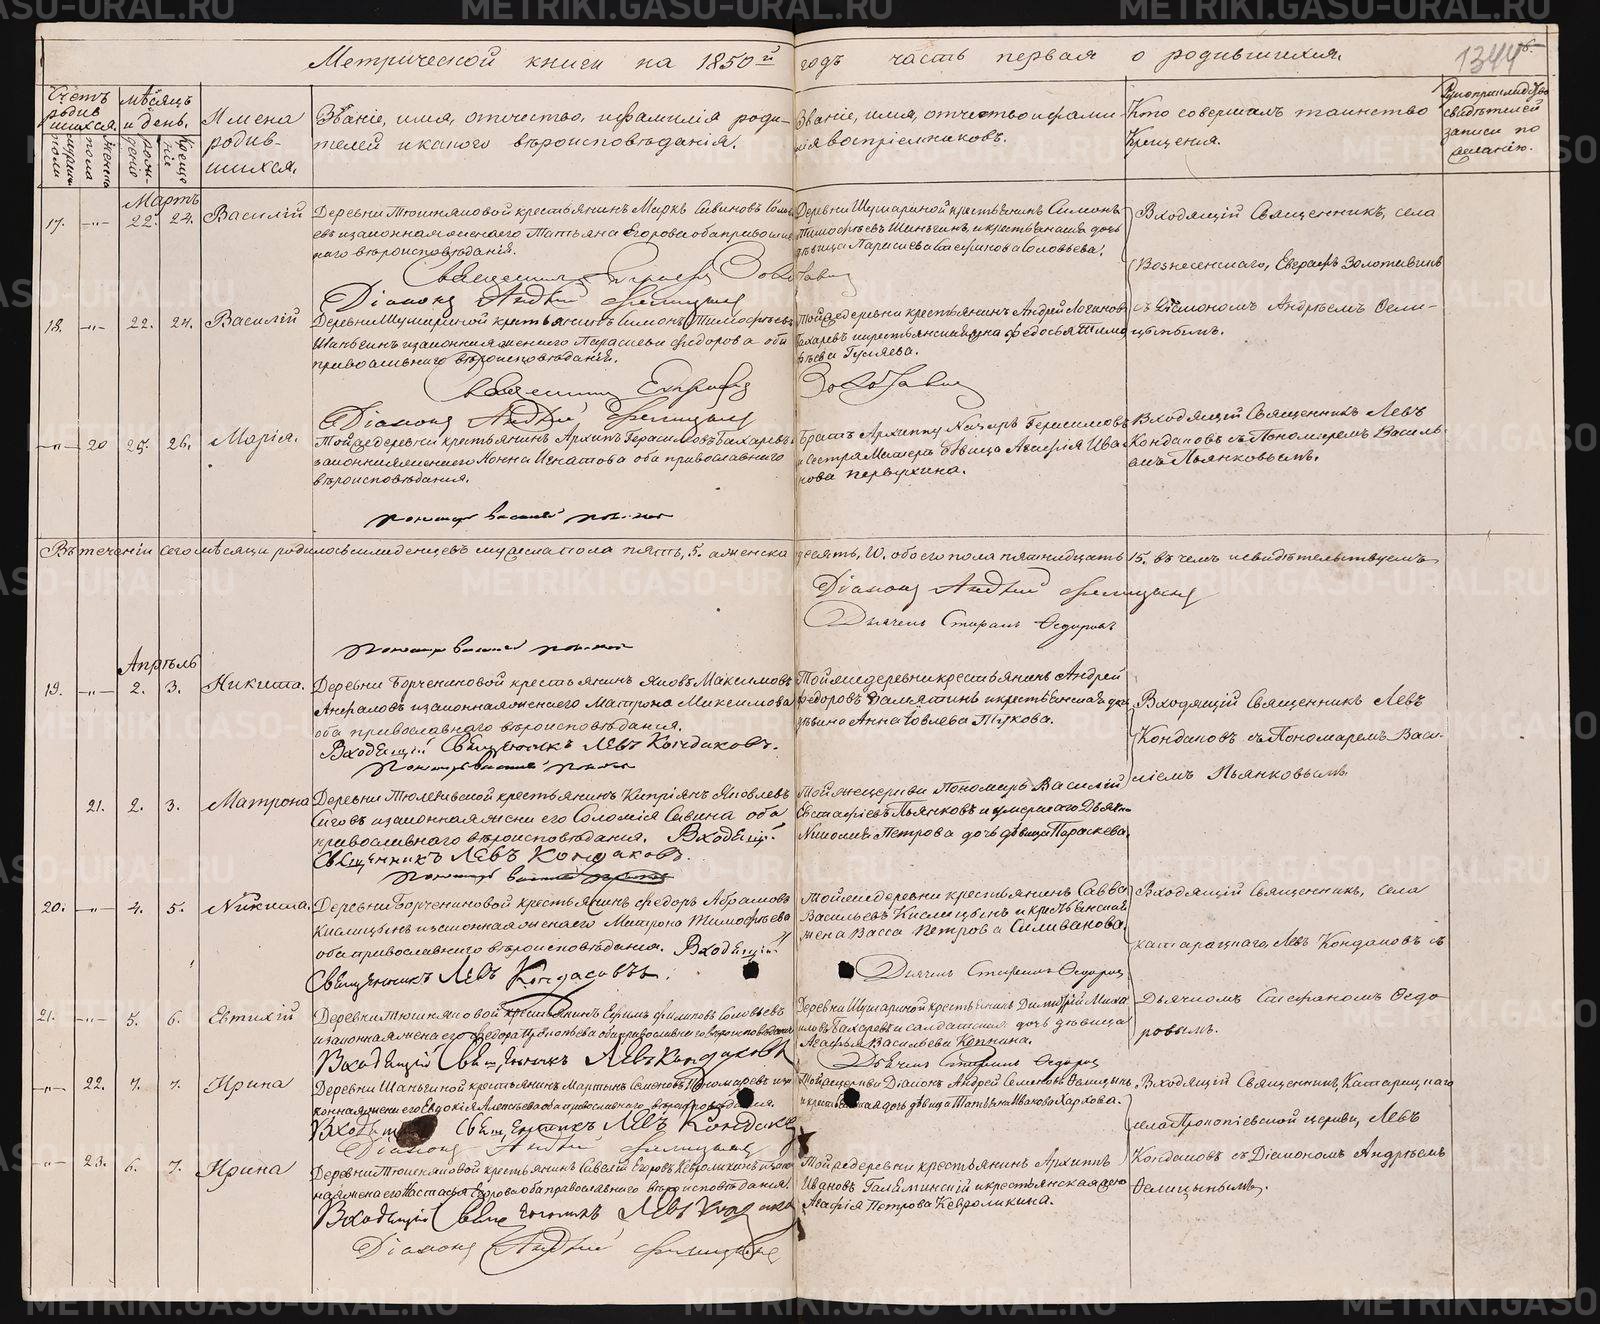 Метрической книги на 1850й годъ часть первая о родившихся.
1344
Счетъ родив шихся.
мужеска пола
женска пола
мѣсяцъ и день.
рож- денія
креще нія
Имена родив- шихся.
Званіе, имя, отчество, и фамилія роди-
телей и какого вѣроисповѣданія.
Званіе, имя, отчество и фами-
лія воспріемниковъ.
Кто совершалъ таинство
Крещенія.
свидѣтелей
записи по
желанію.
Мартъ
17. —"— 22. 24. Василій
Деревни Тюшняковой крестьянинъ Маркъ Савиновъ
евъ и законная жена его Татьяна Егорова оба православ
наго вѣроисповѣданія.
Деревни Шумариной крестьянинъ Симонъ
Тимофѣевъ Шаньгинъ и крестьянская дочь
дѣвица Параскева Стефанова Соловьева.
Входящій Священникъ, села
Вознесенскаго, Евграфъ Золотавинъ
съ Діакономъ Андреемъ Фели-
цынымъ.
Діаконъ Андрей Фелицынъ
18. —"— 22. 24. Василій
Деревни Шумариной крестьянинъ Симонъ Тимофѣевъ
Шаньгинъ и законная жена его Параскева Федорова оба
православнаго вѣроисповѣданія.
Той же деревни крестьянинъ Андрей Логиновъ
Бахаревъ и крестьянская жена Федосья Тимо
фѣева Гуляева.
Священникъ Евграфъ Золотавинъ
Діаконъ Андрей Фелицынъ
—"— 20 25. 26. Марія.
Той же деревни крестьянинъ Архипъ Герасимовъ Бахаревъ
и законная жена его Анна Игнатова оба православнаго
вѣроисповѣданія.
Братъ Архиппу Назаръ Герасимовъ
и сестра Матерь дѣвица Агафія Ива
нова Первухина.
Входящій Священникъ Левъ
Кондаковъ съ Пономаремъ Василь-
емъ Пьянковымъ.
Въ теченіи сего мѣсяца родилось младенцевъ мужеска пола пять, 5. а женска десять, 10. обоего пола пятнадцать 15. въ чемъ и свидѣтельствуемъ
Діаконъ Андрей Фелицынъ
Дьячекъ Стефанъ Федоровъ
Апрѣль
19. —"— 2. 3. Никита.
Деревни Борчениновой крестьянинъ Яковъ Максимовъ
и законная жена его Матрона Максимова
оба православнаго вѣроисповѣданія.
Входящій Священникъ Левъ Кондаковъ.
Той же деревни крестьянинъ Андрей
Федоровъ Замятинъ и крестьянская
дѣвица Анна Іовлева
Входящій Священникъ Левъ
Кондаковъ съ Пономаремъ Васи-
ліемъ Пьянковымъ
21. 2. 3. Матрона
крестьянинъ Кипріянъ Яковлевъ
Сиговъ и законная жена его Соломія Савина оба
православнаго вѣроисповѣданія. Входящій
Священникъ Левъ Кондаковъ.
Той же церкви Пономарь Василій
Евстафіевъ Пьянковъ и умершаго Дьячка
Николая Петрова дочь дѣвица Параскева.
20. —"— 4. 5. Никита.
Деревни Борчениновой крестьянинъ Федоръ Абрамовъ
Кислицынъ и законная жена его Матрона Тимофѣева
оба православнаго вѣроисповѣданія. Входящій
Священникъ Левъ Кондаковъ.
Той же деревни крестьянинъ Савва
Васильевъ Кислицынъ и крестьянская
жена Васса Петрова Селиванова.
Дьячекъ Стефанъ Федоровъ
Входящій Священникъ, села
Левъ Кондаковъ съ
Дьячкомъ Стефаномъ Федо
ровымъ.
21. —"— 5. 6. Евтихій
Деревни Тюшняковой крестьянинъ Ефимъ Филиповъ Соловьевъ
и законная жена его Федора оба православнаго вѣроисповѣданія
Входящій Священникъ Левъ Кондаковъ
Деревни Шумариной крестьянинъ Димитрій Миха
иловъ Бахаревъ и солдатская дочь дѣвица
Агафья Васильева
Дьячекъ Стефанъ Федоровъ
—"— 22. 7. 7. Ирина
Деревни Шаньгиной крестьянинъ Мартынъ Семеновъ Пономаревъ и за
конная жена его Евдокія Алексѣева оба православнаго вѣроисповѣданія.
Входящій Священникъ Левъ Кондаковъ
Діаконъ Андрей Фелицынъ
Той же церкви Діаконъ Андрей Семеновъ Фелицынъ
и крестьянская дочь дѣвица Татьяна Иванова Хархова.
Входящій Священникъ,
села Прокопіевской церкви, Левъ
Кондаковъ съ Діакономъ Андреемъ
Фелицынымъ.
—"— 23. 6. 7. Ирина
Деревни Тюшняковой крестьянинъ Савватій Егоровъ Кевролихинъ и закон
ная жена его Настасья Егорова оба православнаго вѣроисповѣданія.
Входящій Священникъ Левъ Кондаковъ
Діаконъ Андрей Фелицынъ
Той же деревни крестьянинъ Архиппъ
Ивановъ и крестьянская дочь
Агафія Петрова Кевролихина.
METRIKI.GASO-URAL.RU